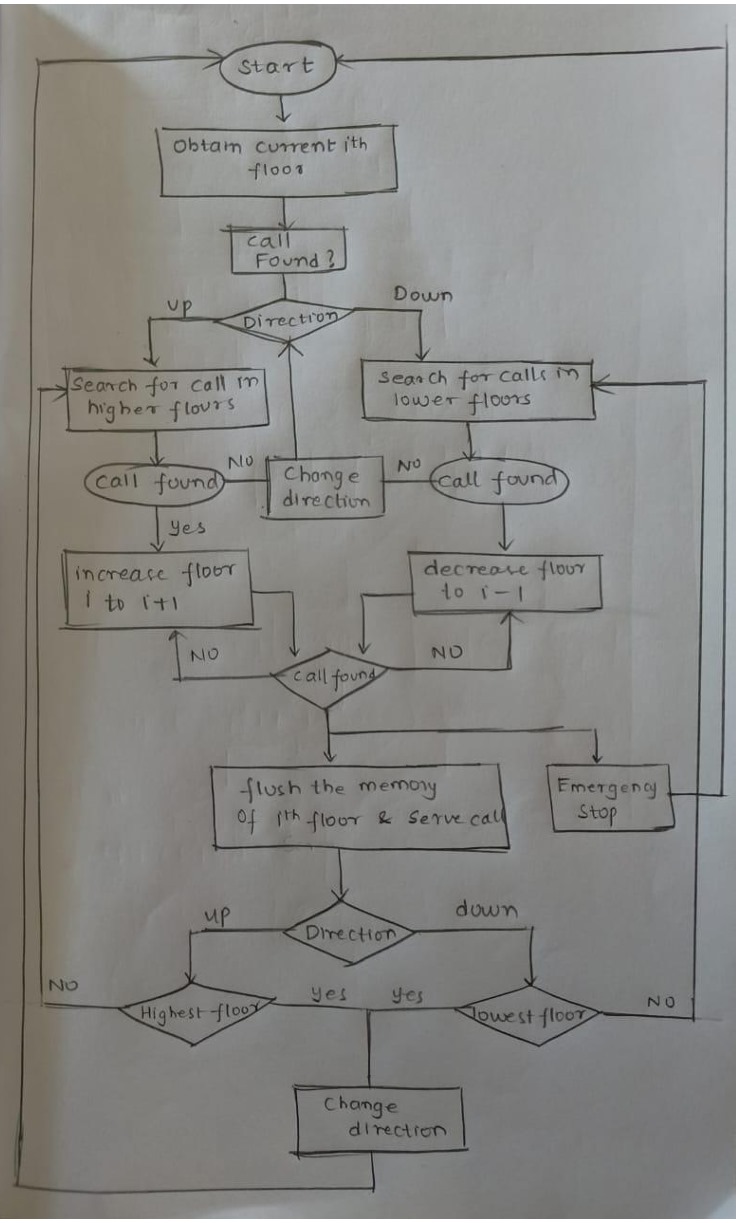 Start
Obtain current ith
floor
Call
Found?
up
Down
Direction
Search for call in
higher flours
Search for calls in
lower floors
Call found
NO
Change
direction
NO
Call found
Yes
increase floor
i to i+1
decrease flour
to i-1
NO
Call found
NO
flush the memory
Of ith floor & Serve call
Emergency
Stop
up
down
Direction
NO
Highest floor
yes
yes
lowest floor
NO
Change
direction